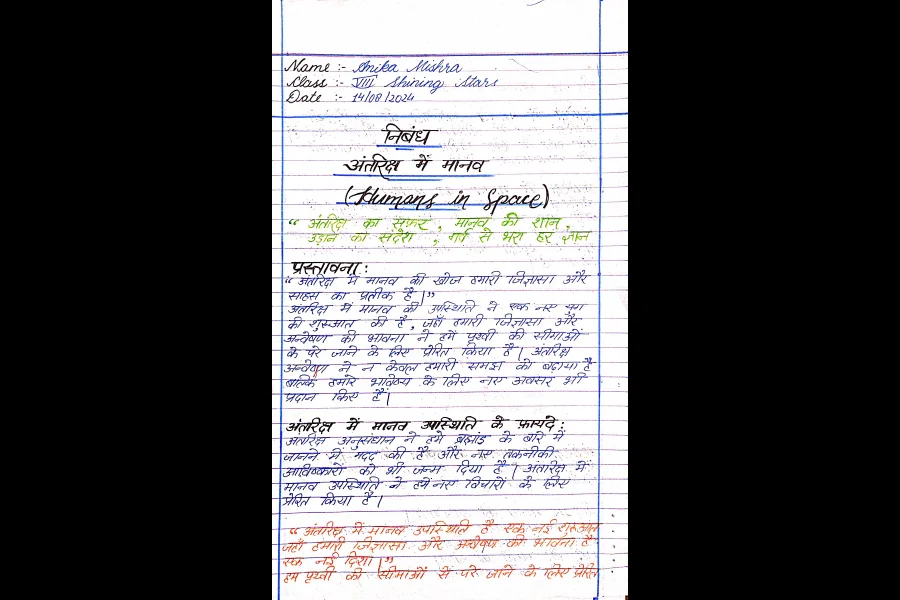 Name :- Anika Mishra
Class :- VIII Shining Stars
Date :- 14/08/2024
निबंध
अंतरिक्ष में मानव
(Humans in Space)
“ अंतरिक्ष का सफर , मानव की शान ,
उड़ान का संदेश , गर्व से भरा हर ज्ञान
प्रस्तावना :
“अंतरिक्ष में मानव की खोज हमारी जिज्ञासा और
साहस का प्रतीक है।”
अंतरिक्ष में मानव की उपस्थिति ने एक नए युग
की शुरुआत की है, जहाँ हमारी जिज्ञासा और
अन्वेषण की भावना ने हमें पृथ्वी की सीमाओं
के परे जाने के लिए प्रेरित किया है। अंतरिक्ष
अन्वेषण ने न केवल हमारी समझ को बढ़ाया है
बल्कि हमारे भविष्य के लिए नए अवसर भी
प्रदान किए हैं।
अंतरिक्ष में मानव उपस्थिति के फ़ायदे :
अंतरिक्ष अनुसंधान ने हमें ब्रह्मांड के बारे में
जानने में मदद की है और नए तकनीकी
आविष्कारों को भी जन्म दिया है। अंतरिक्ष में
मानव उपस्थिति ने हमें नए विचारों के लिए
प्रेरित किया है।
“ अंतरिक्ष में मानव उपस्थिति है एक नई शुरुआत
जहाँ हमारी जिज्ञासा और अन्वेषण की भावना है
एक नई दिशा।”
हम पृथ्वी की सीमाओं से परे जाने के लिए प्रेरित